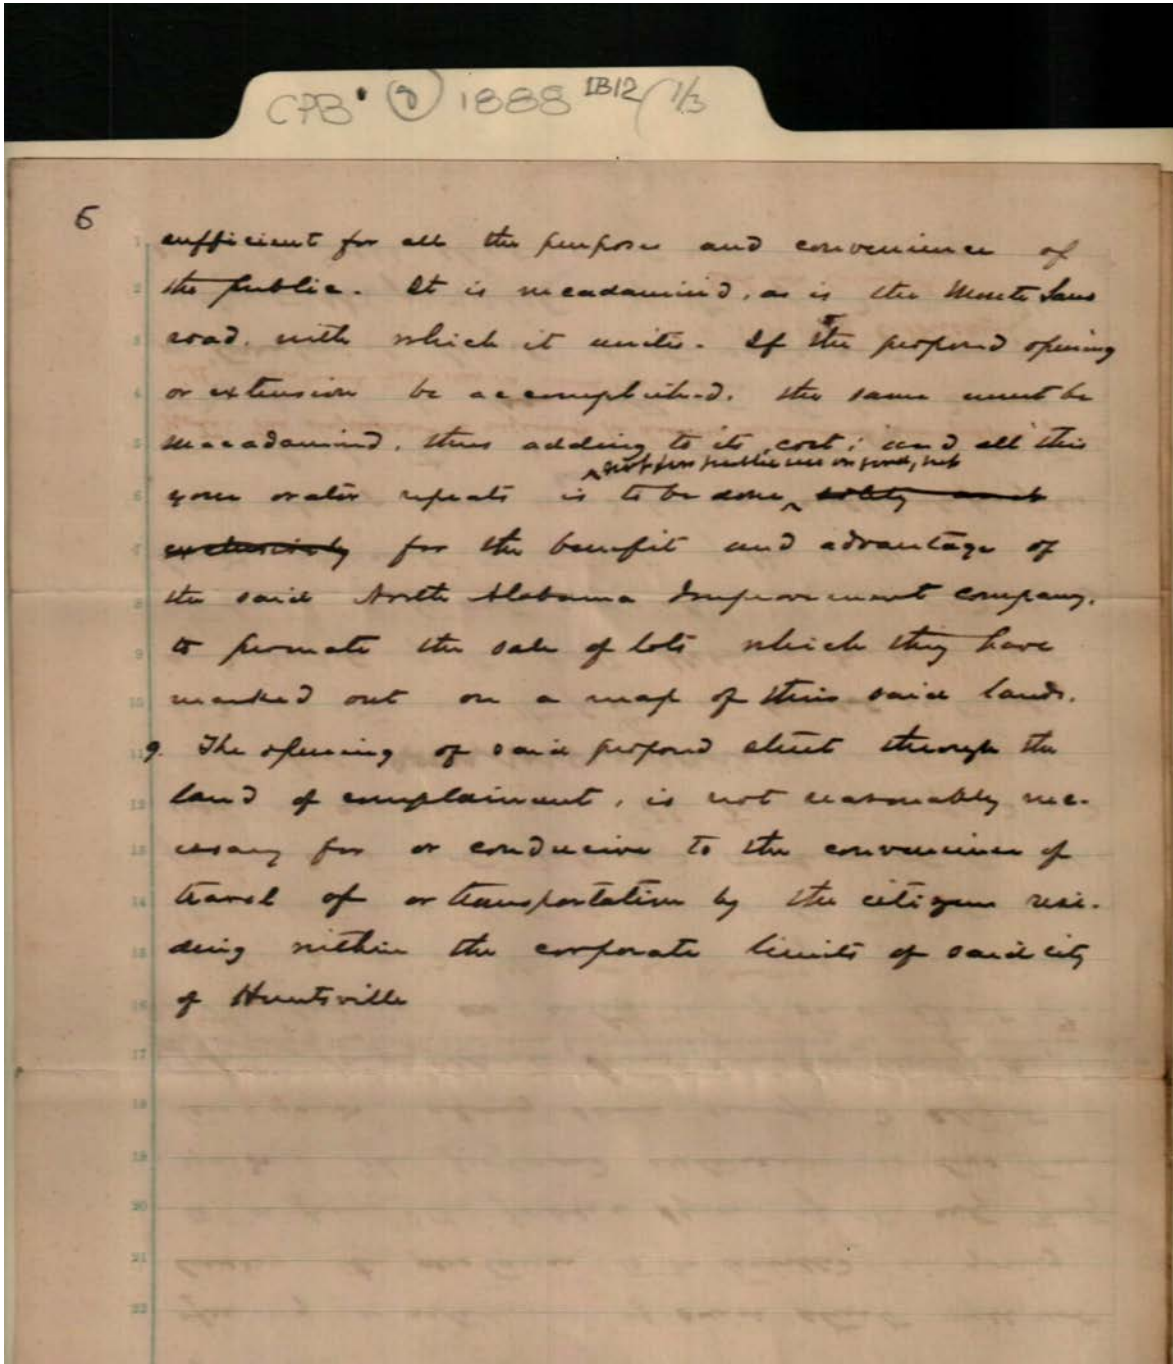 CPB 8 1888 IB12 1/3
5
sufficient for all the purposes and convenience of
the public. It is mcadamized, as is the Monte Sano
road, with which it unites. If the proposed opening
or extension be accomplished, the same must be
macadamized, thus adding to its cost; and all this
not for public use or good, but
your orator repeats is to be done solely and
exclusively for the benefit and advantage of
the said North Alabama Improvement company,
to promote the sale of lots which they have
marked out on a map of their said lands.
9. The opening of said proposed street through the
land of complainant, is not reasonably nec-
essary for or conducive to the convenience of
travel of or transportation by the citizens resi-
ding within the corporate limits of said city
of Huntsville